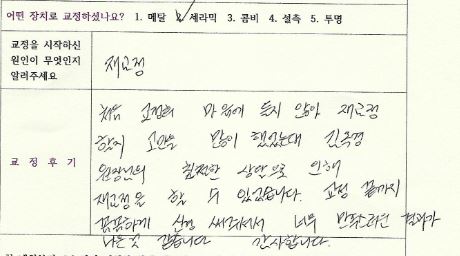 어떤 장치로 교정하셨나요? 1. 메탈 2. 세라믹 3. 콤비 4. 설측 5. 투명
교정을 시작하신
원인이 무엇인지
알려주세요
재교정
교정후기
처음 교정이 마음에 들지 않아 재교정
함에 고민을 많이 했었는데
원장님의 친절한 상담으로 인해
재교정을 할 수 있었습니다. 교정 끝까지
꼼꼼하게 신경 써주셔서 너무 만족스러운 결과가
나온것 같습니다 감사합니다.